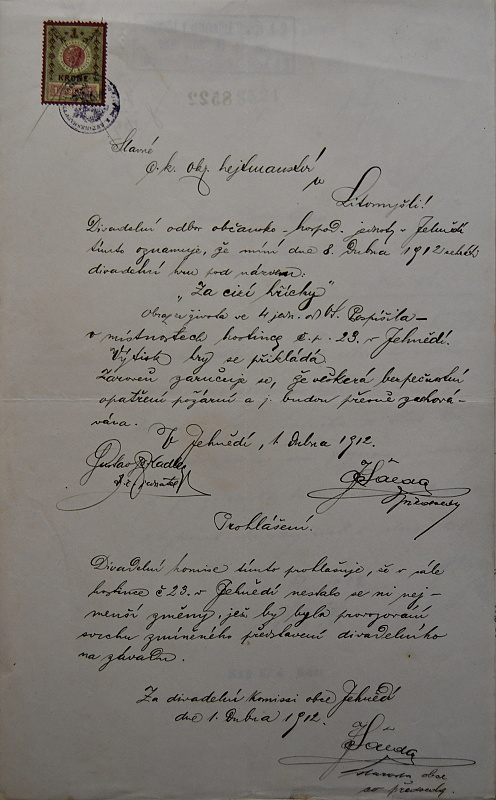 1
KRONE
Slavné
c. k. okr. hejtmanství
v
Litomyšli!
Divadelní odbor občansko-hospod. jednoty v Jehnědí
tímto oznamuje, že míní dne 8. Dubna 1912 sehráti
divadelní hru pod názvem:
"Za cizí hříchy"
Obraz ze života ve 4 jedn. od Vl. Pospíšila
v místnostech hostince č. p. 23. v Jehnědí.
Výtisk hry se přikládá
Zároveň zaručuje se, že veškerá bezpečnostní
opatření požární a j. budou přesně zachová-
vána.
V Jehnědí, 1. Dubna 1912.
Gustav
předseda
Prohlášení.
Divadelní komise tímto prohlašuje, že v sále
hostince č 23. v Jehnědí nestalo se ni nej-
menší změny, jež by byla provozování
svrchu zmíněného představení divadelního
na závadu.
Za divadelní komissi obce Jehnědí
dne 1. Dubna 1912.
starosta obce
co předseda.